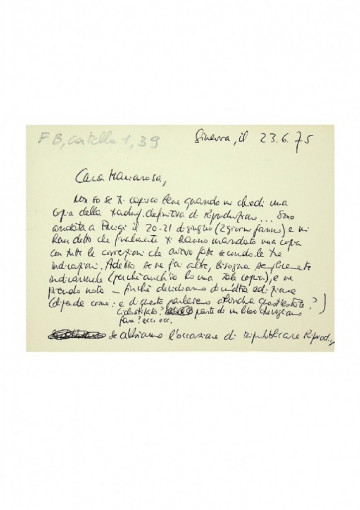 FB, cartella 1, 39
Ginevra, il 23.6.75
Cara Mariarosa,
non so se ti capisco bene quando mi chiedi una
copia della traduz. definitiva di riproduzione... Sono
andata a Parigi il 20-21 di giugno (2 giorni fanno) e mi
han detto che finalmente ti hanno mandato una copia
con tutte le correzioni che avevo fatto secondo le tue
indicazioni. Adesso se ne fai altre, bisogna semplicemente
indicarmele (perché anch'io ho una copia), e ne
prendo nota — finché decidiamo di un'altra edizione
(dipende come: e di questo parleremo
identico? parte di un libro che
fare? ecc. ecc.
se abbiamo l'occasione di ripubblicare Riprod.